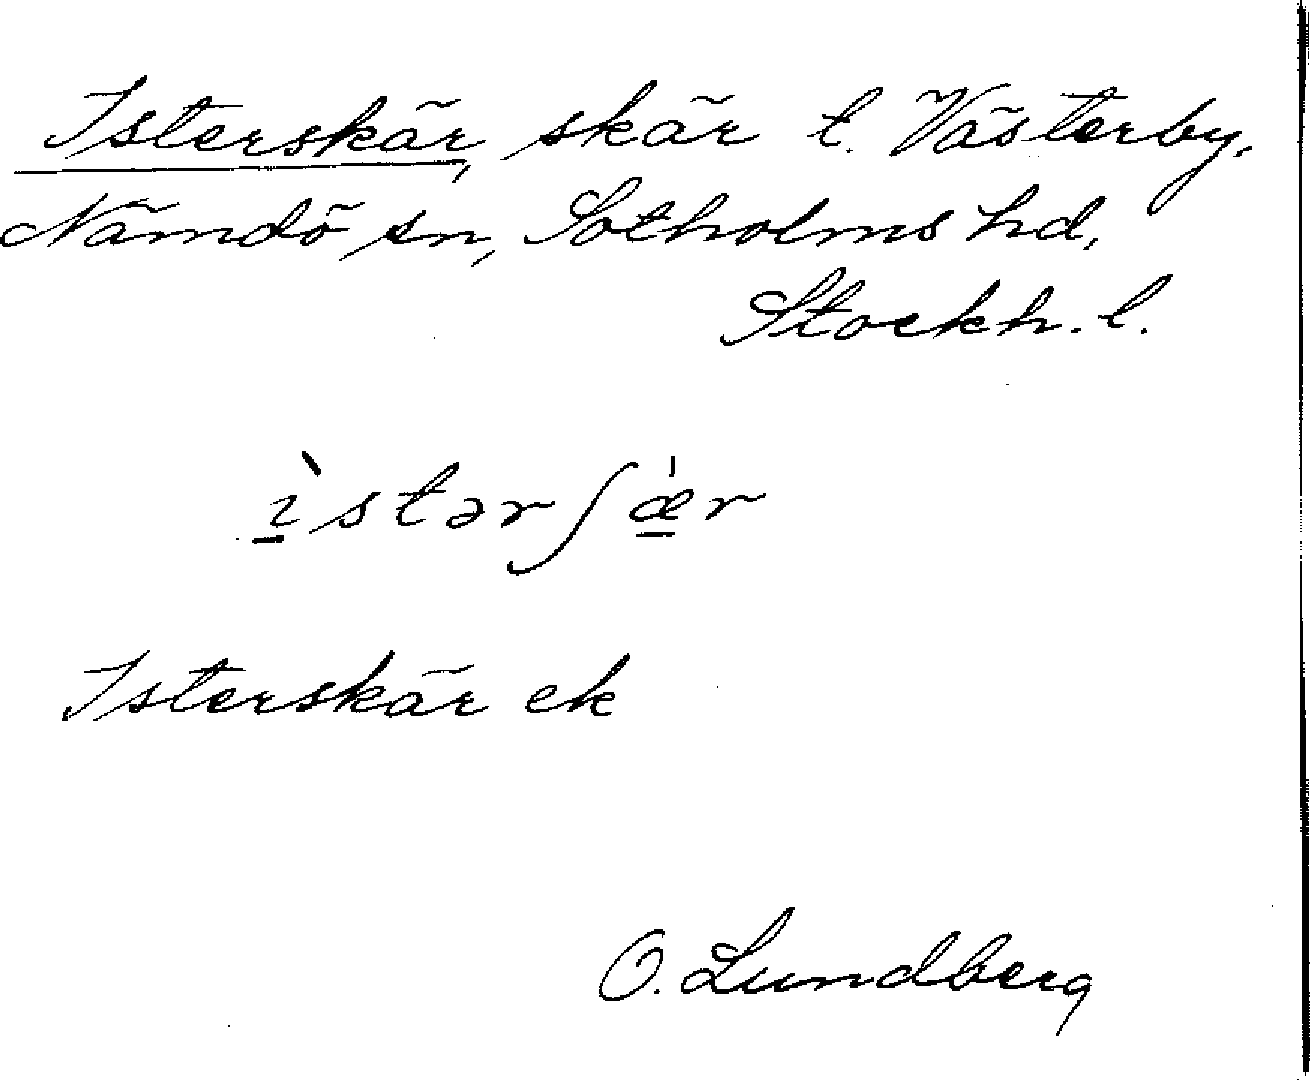 Isterskär, skär t. Västerby,
Nämdö sn, Sotholms hd,
Stockh. l.
ìstərʃæ̀r
Isterskär ek
O. Lundberg